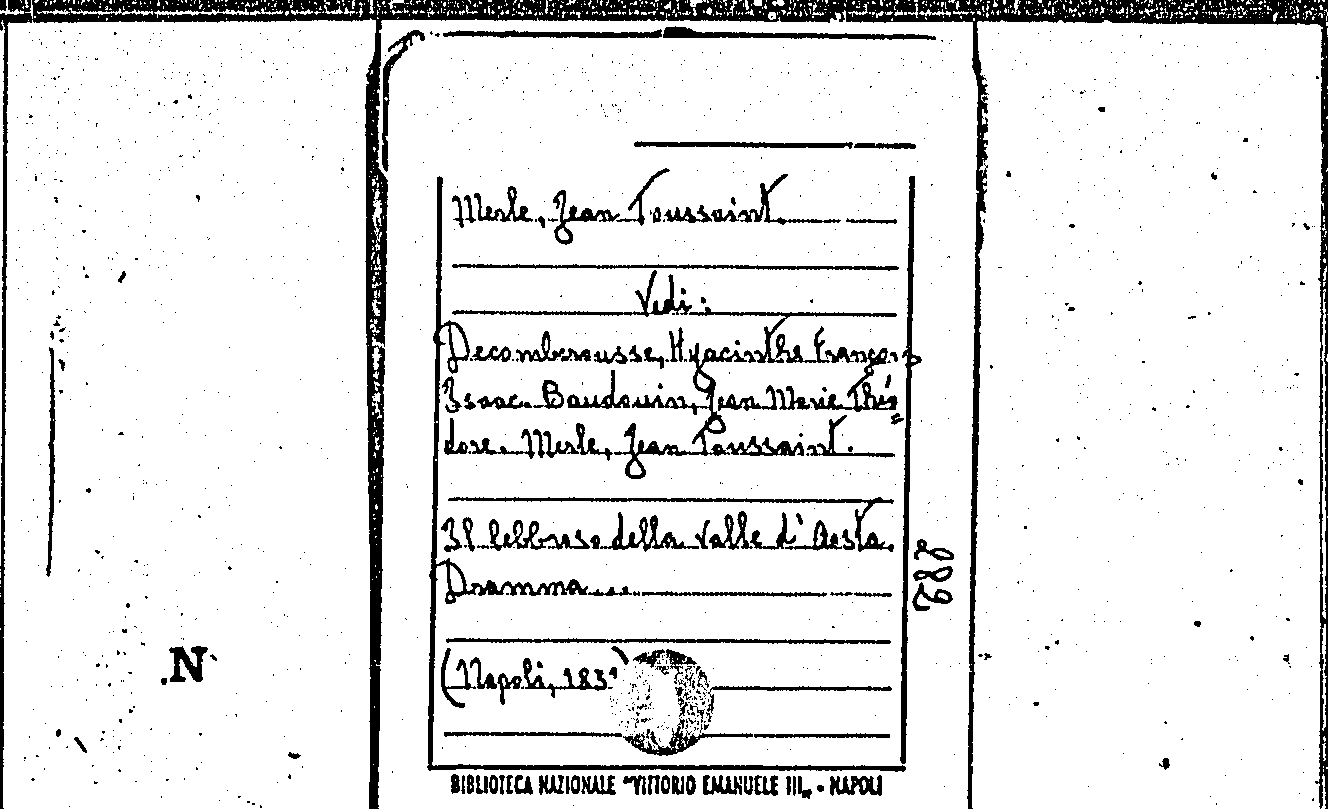 Merle, Jean Toussaint.
Vedi:
Decomberousse, Hyacinthe François
Isaac. Baudouin, Jean Marie Théo=
dore. Merle, Jean Toussaint.
Il lebbroso della valle d'Aosta.
Dramma...
(Napoli,
282
.N
BIBLIOTECA NAZIONALE "VITTORIO EMANUELE III„ - NAPOLI